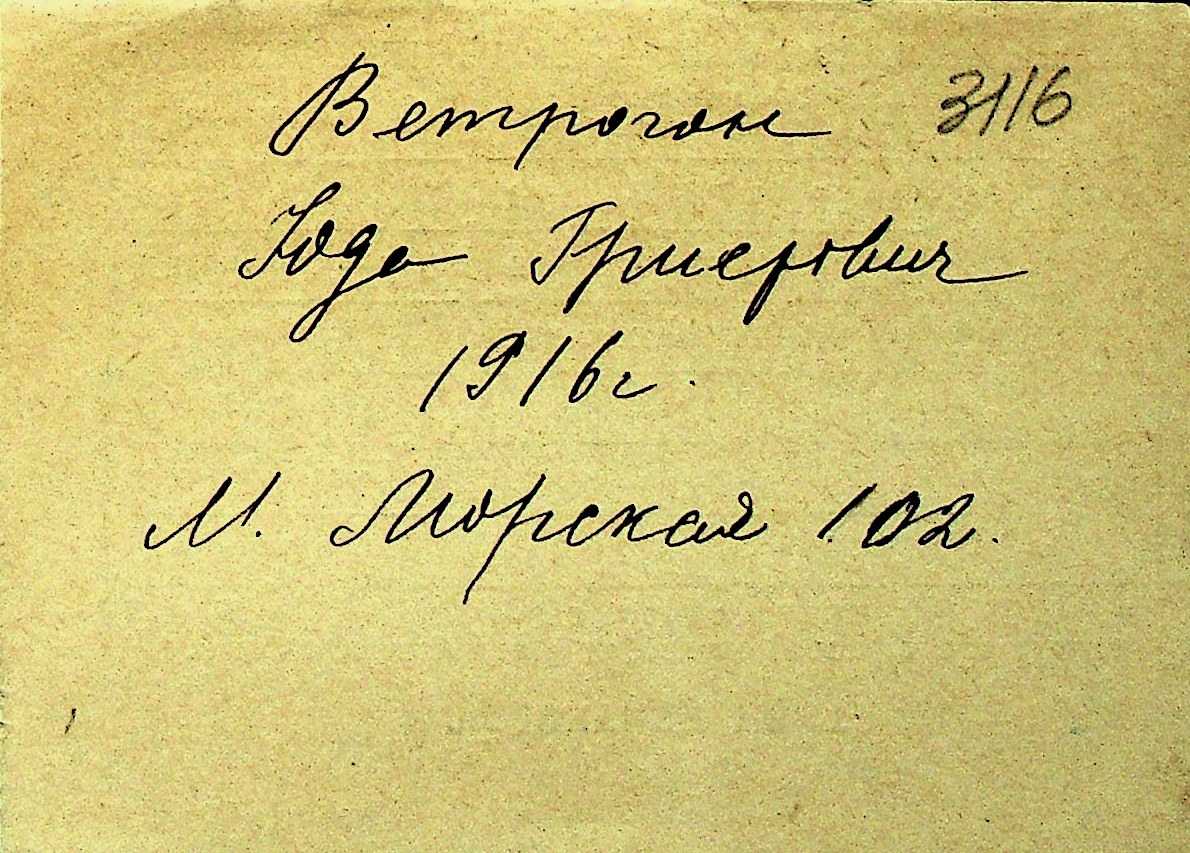 Ветрогон 3116
Юда Гриерович
1916 г.
М. Морская 102.